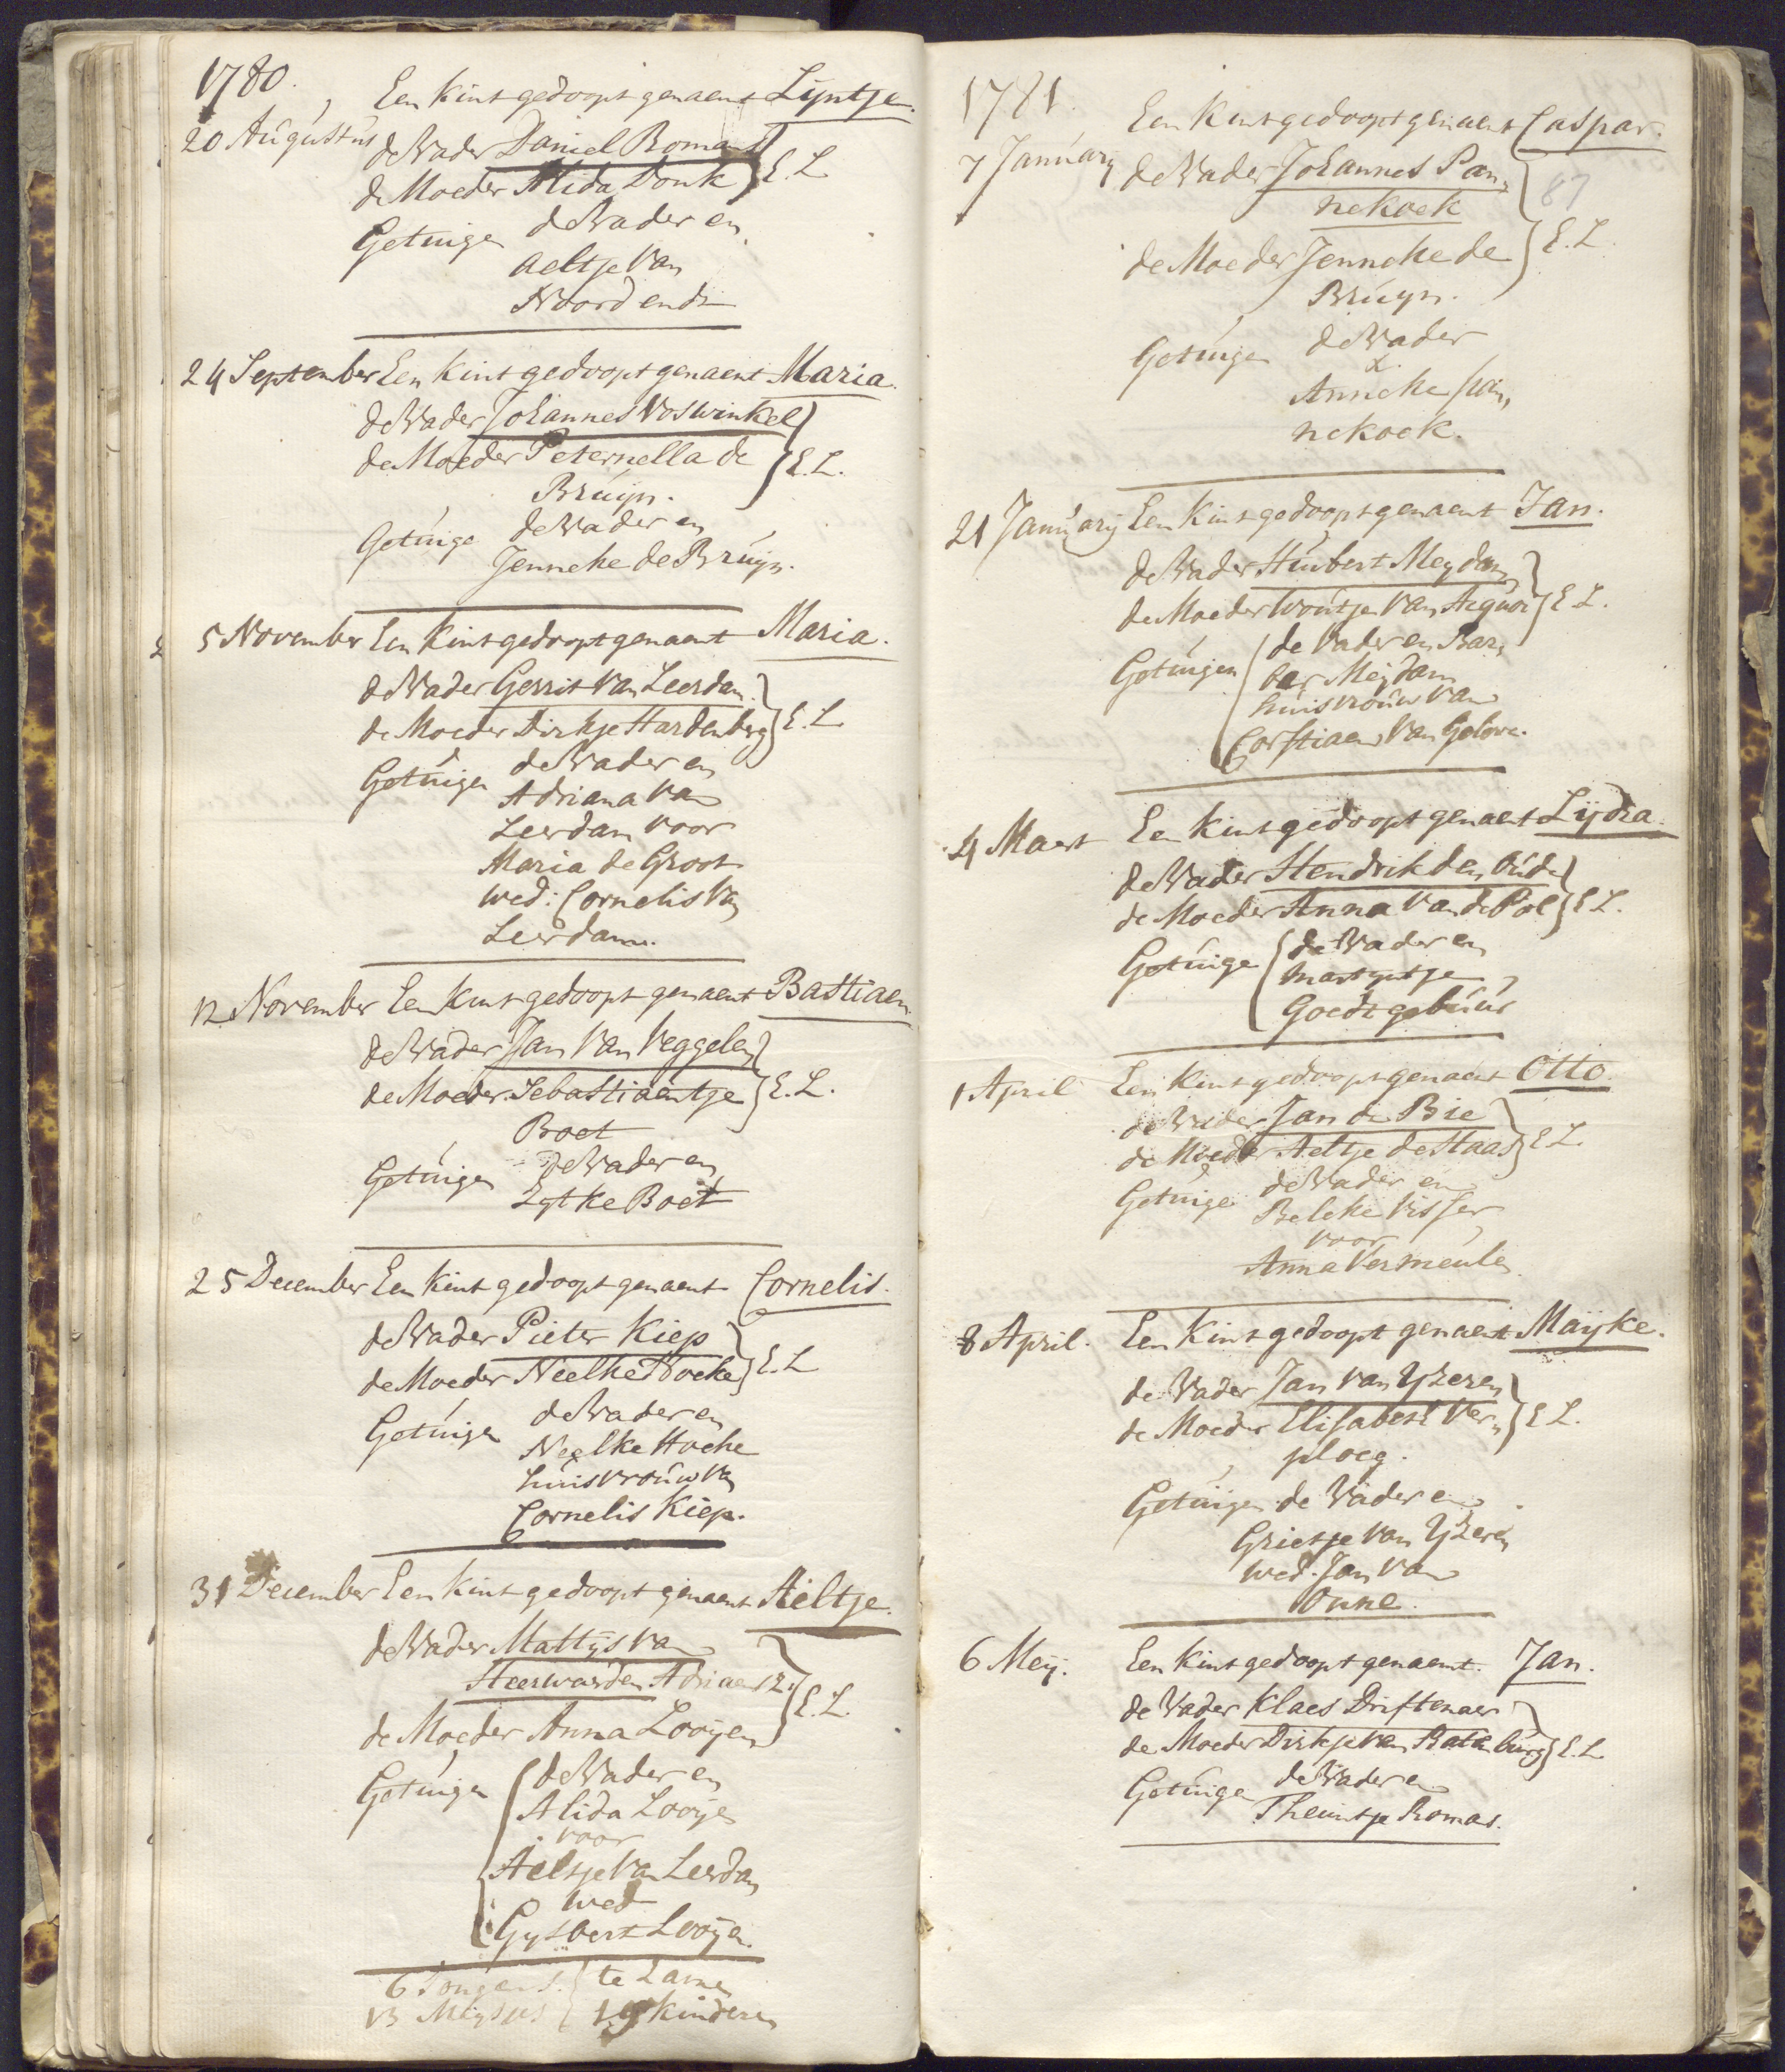 1780.
Een kint gedoopt genaemt Lijntje.
20 Augustus de Vader Daniel Romans
de Moeder Alida Donk } E. L
Getuigen de Vader en
Aeltje van
Noordende
24 September Een kint gedoopt genaemt Maria.
de Vader Johannes Voswinkel
de Moeder Peternella de } E. L.
Bruijn.
Getuige de Vader en
Jenneke de Bruijn.
5 November Een kint gedoopt genaemt Maria.
de Vader Gerrit van Leerdam.
de Moeder Dirkje Hardenberg } E. L
Getuigen de Vader en
Adriana van
Leerdam voor
Maria de Groot
wed: Cornelis van
Leerdam.
12 November Een kint gedoopt genaemt Bastiaen.
de Vader Jan van Veggelen
de Moeder Sebastiaentje } E. L.
Boet
Getuigen de Vader en
Eijtke Boet
25 December Een kint gedoopt genaemt Cornelis.
de Vader Pieter Kiep
de Moeder Neelke Hoeke } E. L
Getuigen de Vader en
Neelke Hoeke
huisvrouw van
Cornelis Kiep.
31 December Een kint gedoopt genaemt Aeltje.
de Vader Mattijs van
Heerwarden Adriaensz.
de Moeder Anna Looijen } E. L.
Getuigen de Vader en
Alida Looije
voor
Aeltje van Leerdam
wed
Gijsbert Looijen.
6 Jongens te zamen
13 Meysjes 19 kinderen
1781.
Een kint gedoopt genaemt Caspar.
7 January de Vader Johannes Pan,
nekoek
87
de Moeder Jenneke de } E. L.
Bruijn.
Getuigen de Vader
&
Anneke Pan,
nekoek.
21 January Een kint gedoopt genaemt Jan.
de Vader Huibert Meydam
de Moeder Woutje van Acquoi } E L.
Getuigen de Vader en Bar,
ber Meijdam
huisvrouw van
Corstiaen van Gelove.
4 Maert Een kint gedoopt genaemt Lijdia.
de Vader Hendrik den Oude
de Moeder Anna van de Pol } E L.
Getuige de Vader en
Martyntje
Goedtgebuur
1 April Een kint gedoopt genaemt Otto.
de Vader Jan de Bie
de Moeder Aeltje de Haas } E L.
Getuige de Vader en
Beleke Visser
voor
Anna Vermeulen
8 April. Een kint gedoopt genaemt Maijke.
de Vader Jan van Yzeren
de Moeder Elisabeth Ver, } E L.
ploeg.
Getuigen de Vader en
Grietje van Yzeren
wed. Jan van
Onne.
6 Meij. Een kint gedoopt genaemt. Jan.
de Vader Klaes Driftenaer
de Moeder Dirkje van Ratenburg } E. L
Getuige de Vader en
Theuntje Romas.